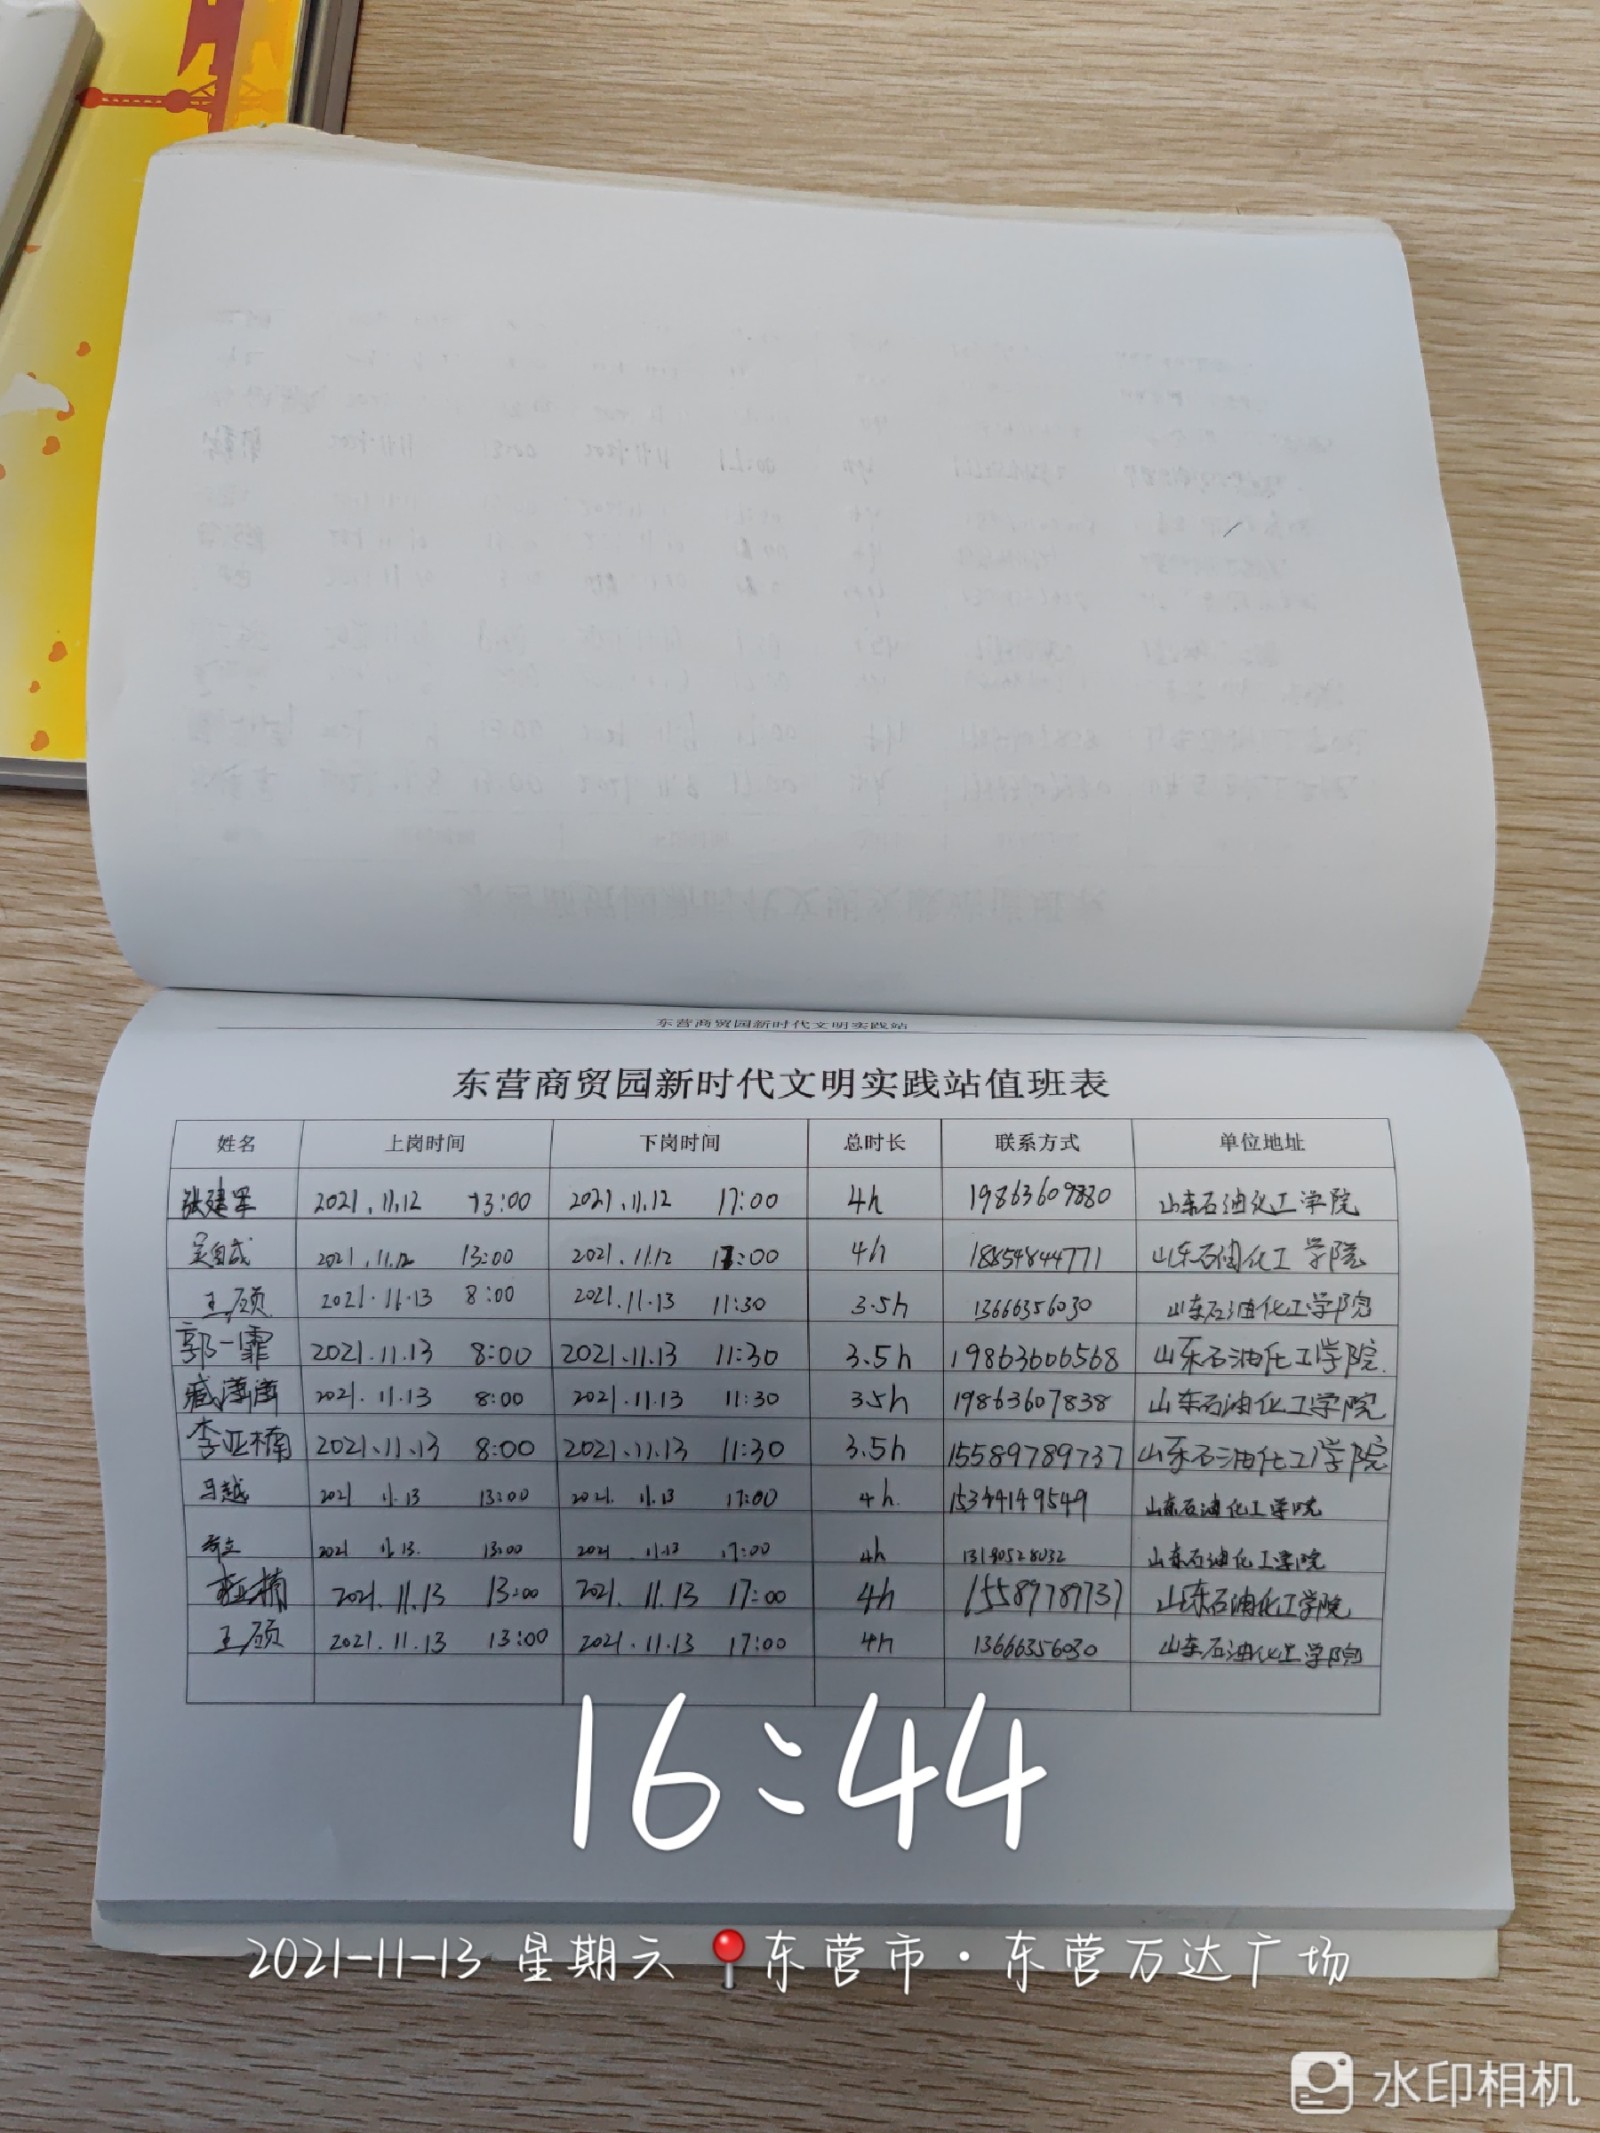 东营商贸园新时代文明实践站
东营商贸园新时代文明实践站值班表
姓名 上岗时间 下岗时间 总时长 联系方式 单位地址
张建军 2021.11.12 13:00 2021.11.12 17:00 4h 19863609880 山东石油化工学院
吴自成 2021.11.12 13:00 2021.11.12 17:00 4h 18854844771 山东石油化工学院
王硕 2021.11.13 8:00 2021.11.13 11:30 3.5h 13666356030 山东石油化工学院
郭一霏 2021.11.13 8:00 2021.11.13 11:30 3.5h 19863606568 山东石油化工学院.
臧潇潇 2021.11.13 8:00 2021.11.13 11:30 3.5h 19863607838 山东石油化工学院
李亚楠 2021.11.13 8:00 2021.11.13 11:30 3.5h 15589789737 山东石油化工学院
马越 2021 11.13 13:00 2021. 11.13 17:00 4h. 15344149549 山东石油化工学院
2021 11.13. 13:00 2021 11.13 17:00 4h 山东石油化工学院
李亚楠 2021.11.13 13:00 2021.11.13 17:00 4h 15589789737 山东石油化工学院
王硕 2021.11.13 13:00 2021.11.13 17:00 4h 13666356030 山东石油化工学院
16:44
2021-11-13 星期六 东营市·东营万达广场
水印相机